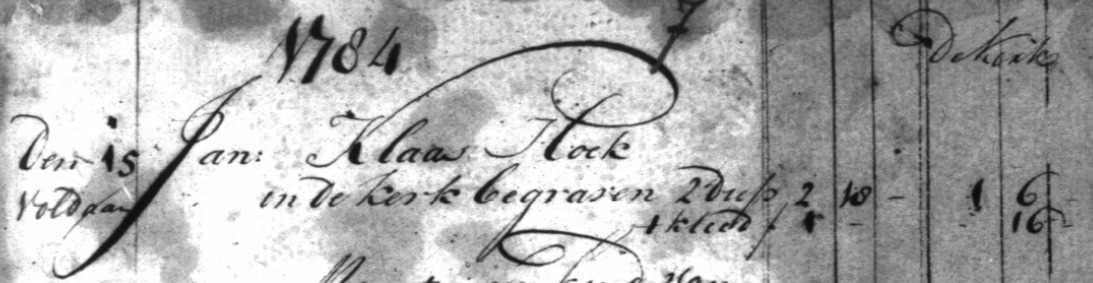 1784 7 de Kerk
Den 15 Jan: Klaas Hoek
Voldaan in de kerk begraven 2 duß 2 18 - 1 6 -
1 kleed f 1 - 16 -